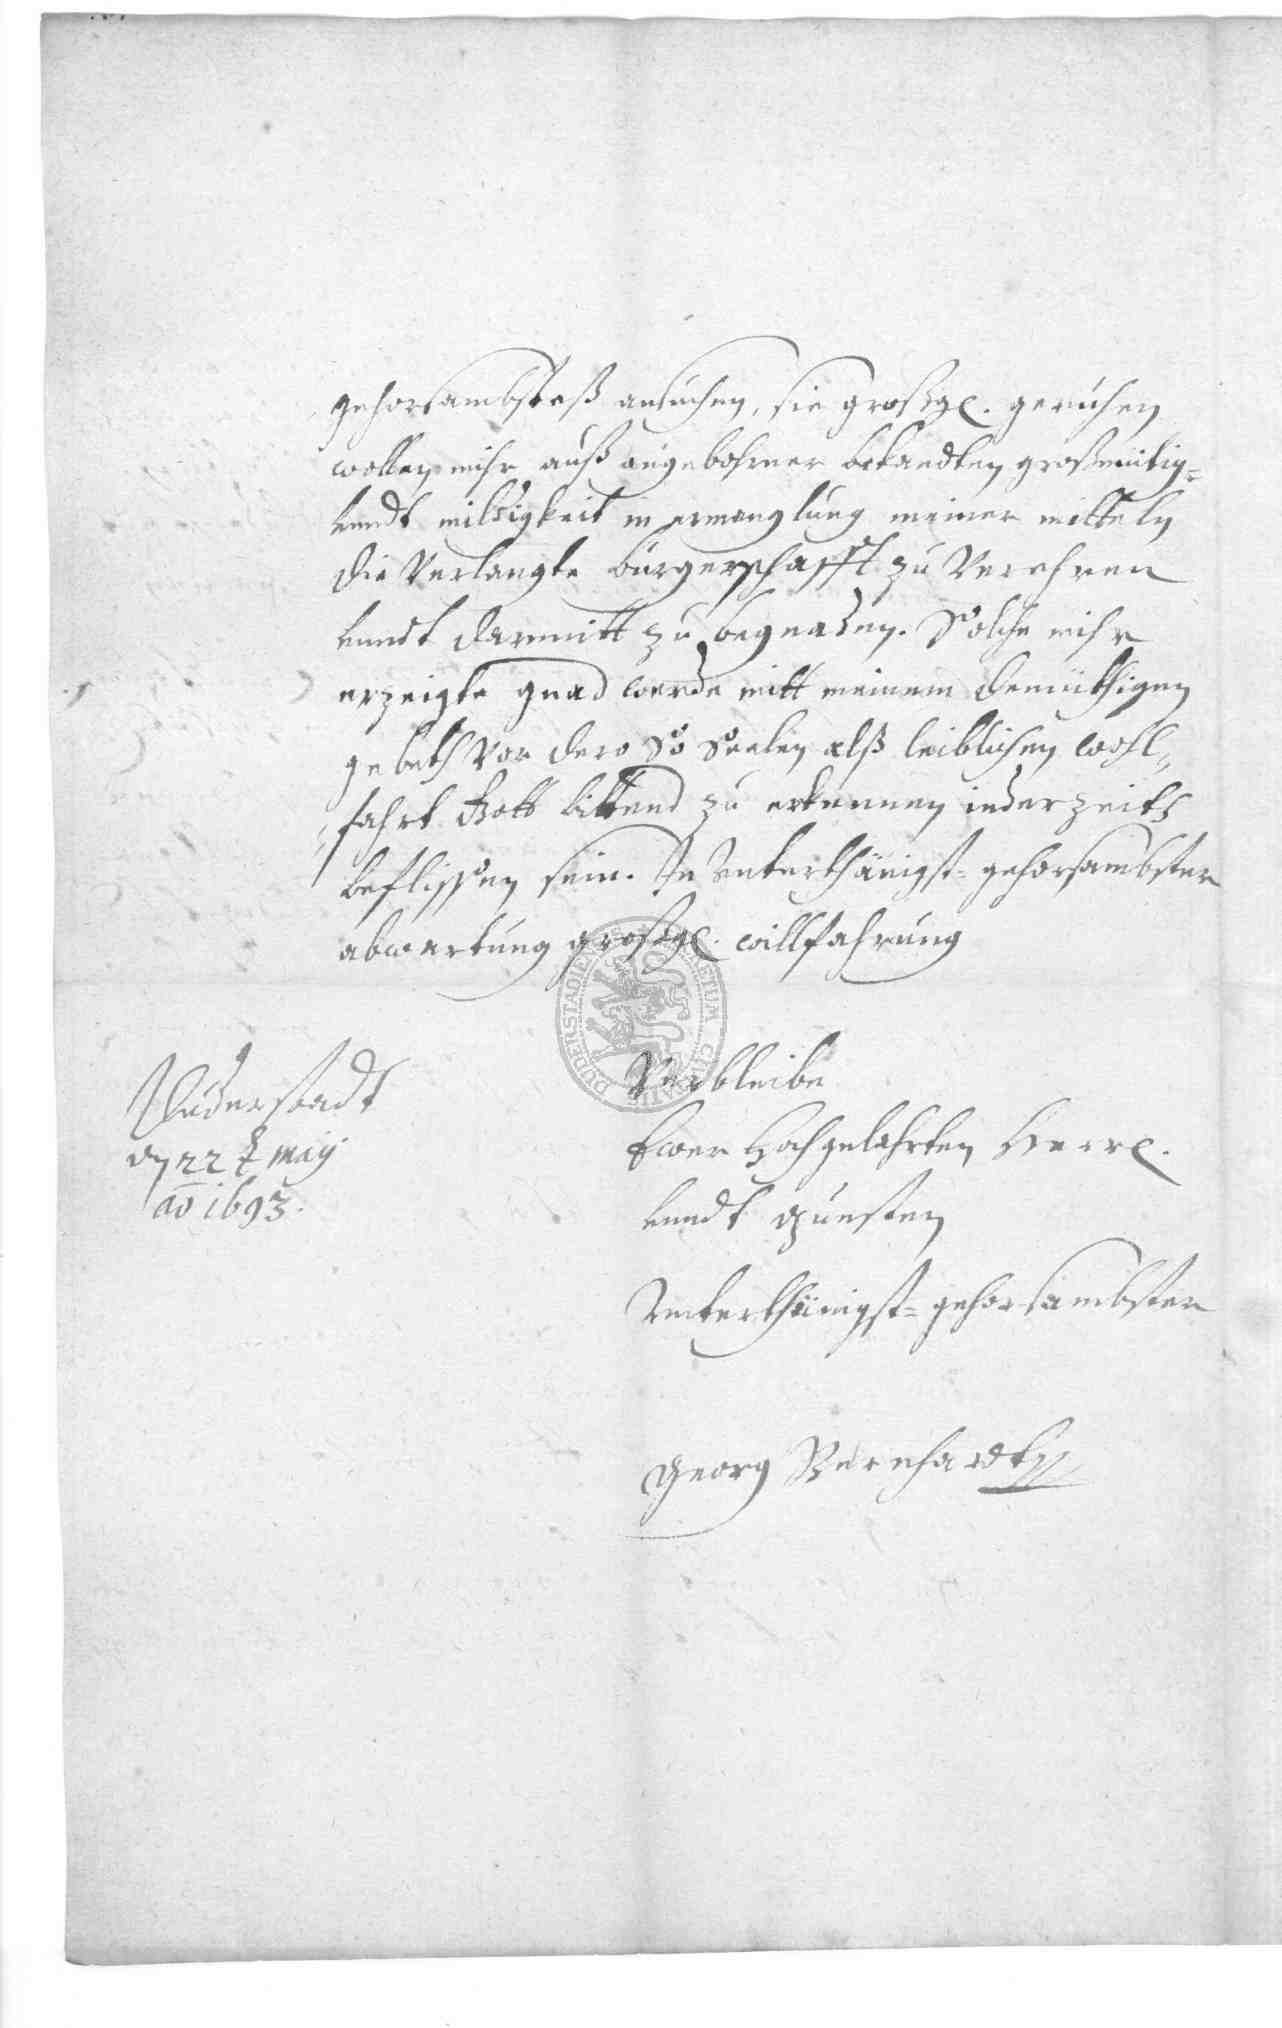 gehorsambsteß ansuchen, sie großgl. geruhen
wollen mihr auß angebohrner bekandten großmütig=
undt mildigkeit in ermanglung meiner mitteln
die Verlangte bürgerschafft zu Verehren
undt darmitt zu begnaden. Solche mihr
erzeigte gnad werde mitt meinem demüthigen
gebeth vor dero so Seelen alß leiblichen wohl„
fahrt Gott bittend zu erkennen iederzeits
beflissen sein. In Unterthänigst= gehorsambster
abwartung großgl. willfahrung
Verbleibe
Duderstadt
den 22t May
ao 1693.
Ewer Hochgelahrten Herrl.
undt gunsten
Unterthänigst= gehorsambster
Georg Bernhardt
DUDERSTADIENSIS CIVITATIS